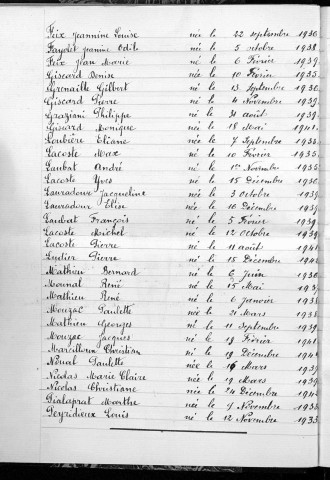 Feix Jeannine Louise née le 22 septembre 1936
Faydet Jeanine Odile née le 5 octobre 1938
Feix Jean Marie né le 6 Février 1939
Giscard Denise née le 10 Février 1935
Grenaille Gilbert né le 13 Septembre 1936
Giscard Pierre né le 4 Novembre 1939
Graziani Philippe né le 31 août 1939
Giscard Monique née le 18 Mai 1941
Loubière Eliane née le 7 Septembre
Lacoste Max né le 10 Février 1935
Laubat André né le 1er Novembre 1935
Lacoste Yves né le 15 Décembre 1936
Lauradour Jacqueline née le 3 Octobre 1939
Lauradour Elise née le 16 Décembre 1939
Laubat François né le 5 Février 1939
Lacoste Michel né le 12 Octobre 1939
Lacoste Pierre né le 11 août 1941
Pierre né le 15 Décembre
Mathieu Bernard né le 6 Juin 1936
Mounal René né le 15 Mai 1937
Mathieu René né le 6 Janvier 1938
Mouzac Paulette née le 21 Mars 1938
Mathieu Georges né le 11 Septembre 1939
Mouzac Jacques né le 13 Février 1941
Christian né le 19 Décembre
Paulette née le 16 Mars 1937
Nicolas Marie Claire née le 19 Mars 1939
Nicolas Christiane née le 24 Décembre
Marthe née le Novembre
Peyridieux Louis né le 12 Novembre 1933